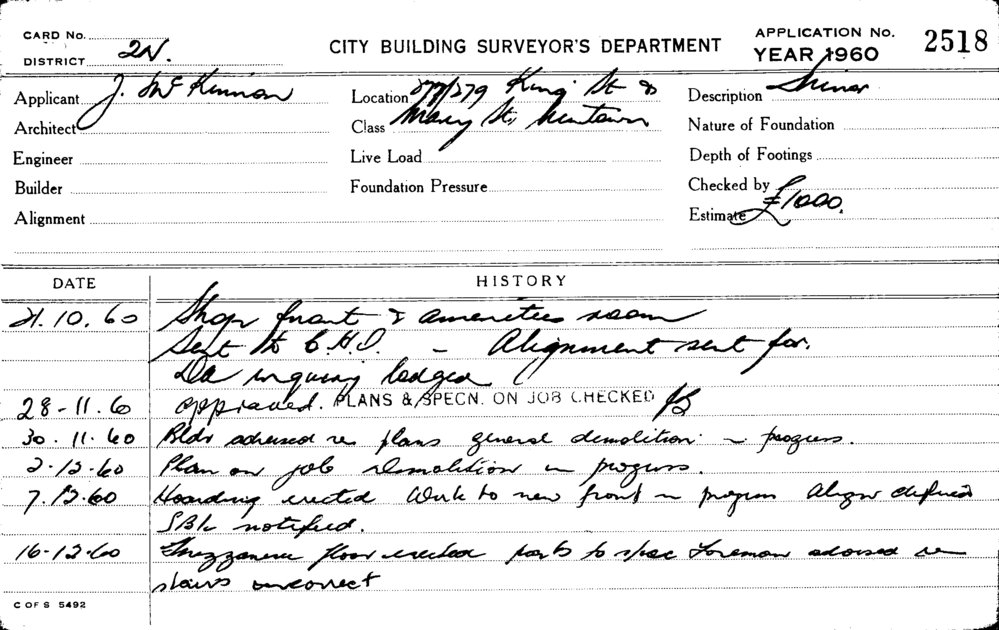 CARD No.
DISTRICT 2N.
CITY BUILDING SURVEYOR'S DEPARTMENT
APPLICATION No.
YEAR 1960
2518
Applicant J. McKinnon
Location 277/279 King St &
Description Minor
Architect
Class Mary St, Newtown
Nature of Foundation
Engineer
Live Load
Depth of Footings
Builder
Foundation Pressure
Checked by
Alignment
Estimate £1000.
DATE
HISTORY
21.10.60 Shop front & amenities room
Sent to C.H.I. - Alignment sent for.
DA inquiry lodged
28-11.60 approved. PLANS & SPECN. ON JOB CHECKED
30.11.60 Bldr advised re plans general demolition in progress.
2.12.60 Plan on job demolition in progress.
7.12.60 Hoarding erected Work to new front in progress Align defined
notified.
16-12-60 Mezzanine floor erected to spec Foreman advised re
stairs incorrect
C OF S 5492